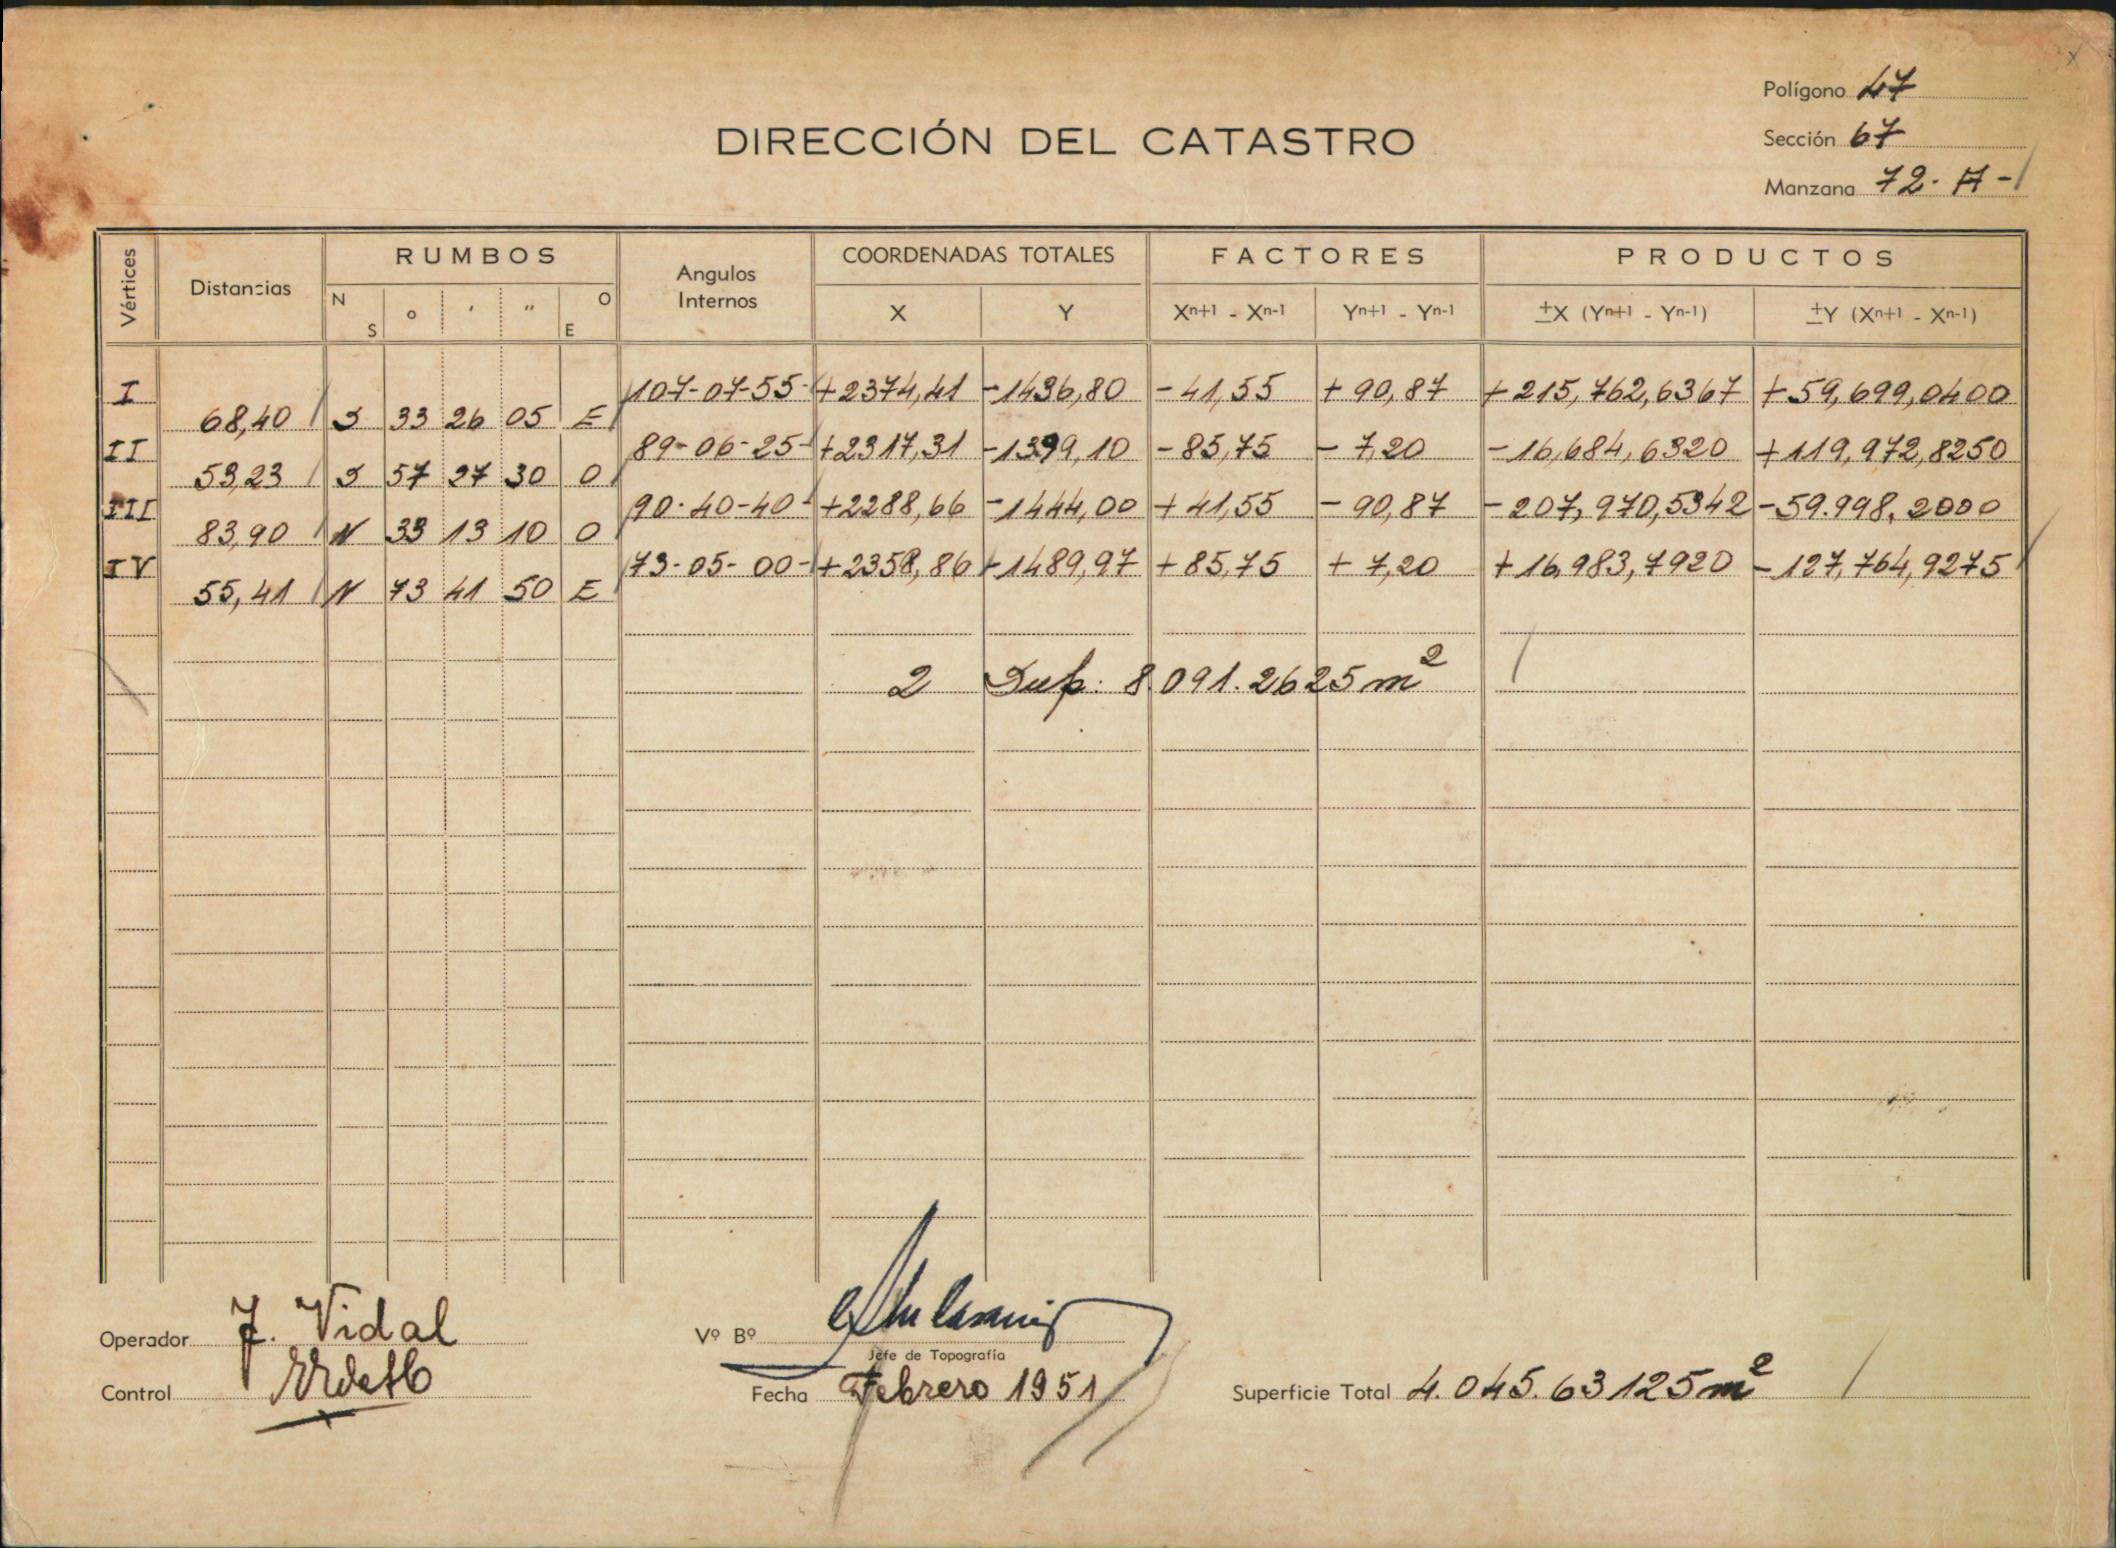 Polígono 47
DIRECCIÓN DEL CATASTRO
Sección 67
Manzana 72-A-
Vértices Distancias RUMBOS Angulos Internos COORDENADAS TOTALES FACTORES PRODUCTOS
N S o ' " O E X Y Xn+1 - Xn-1 Yn+1 - Yn-1 ±X (Yn+1 - Yn-1) ±Y (Xn+1 - Xn-1)
I 107-07-55- +2374,41 -1436,80 -41,55 +90,87 +215,762,6367 +59,699,0400
68,40 S 33 26 05 E
II 89-06-25- +2317,31 -1399,10 -85,75 -7,20 -16,684,6320 +119,972,8250
53,23 S 57 27 30 O
III 90-40-40- +2288,66 -1444,00 +41,55 -90,87 -207,970,5342 -59.998.2000
83,90 N 33 13 10 O
IV 73-05-00- +2358,86 -1489,97 +85,75 +7,20 +16,983,7920 -127,764,9275
55,41 N 73 41 50 E
2 Sup: 8.091.2625 m2
Operador J. Vidal
Vº Bº
Jefe de Topografía
Control
Fecha Febrero 1951
Superficie Total 4.045.63125 m2